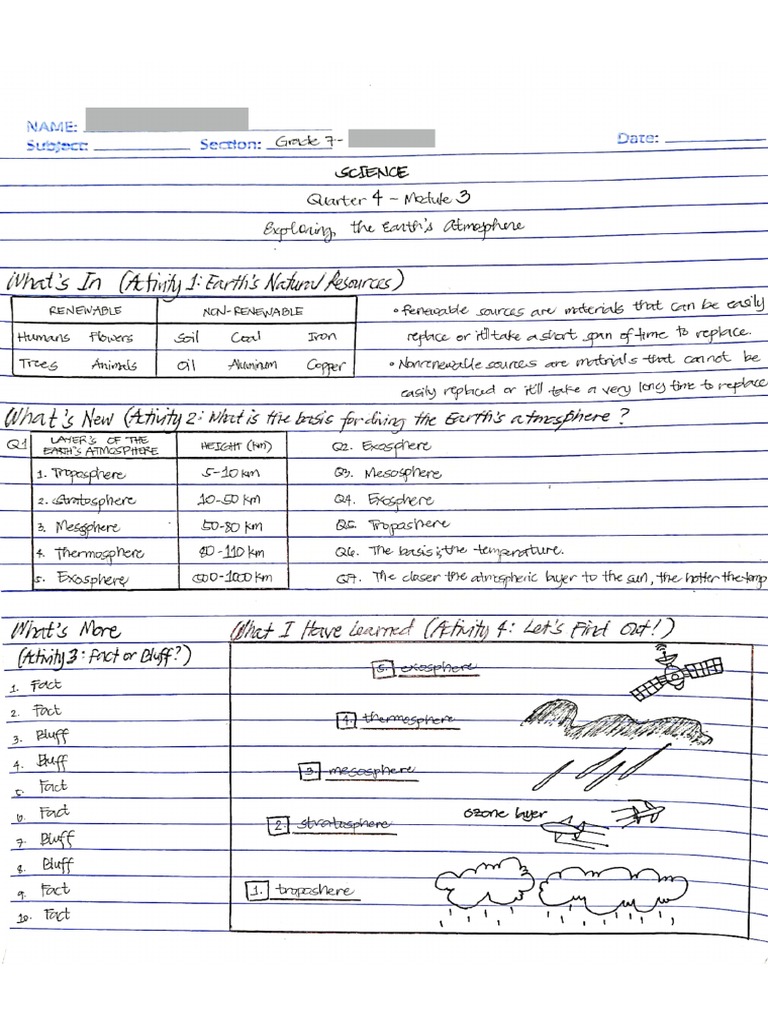 NAME:
Subject: Section: Grade 7- Date:
SCIENCE
Quarter 4 - Module 3
Exploring the Earth's Atmosphere
What's In (Activity 1: Earth's Natural Resources)
RENEWABLE NON-RENEWABLE
Humans Flowers Soil Coal Iron
Trees Animals Oil Aluminum Copper
• Renewable sources are materials that can be easily
replace or it'll take a short span of time to replace.
• Nonrenewable sources are materials that cannot be
easily replaced or it'll take a very long time to replace
What's New (Activity 2: What is the basis for diving the Earth's atmosphere?
Q1 LAYER'S OF THE EARTH'S ATMOSPHERE HEIGHT (km)
1. Troposphere 5-10 km
2. Stratosphere 10-50 km
3. Mesosphere 50-80 km
4. Thermosphere 80-110 km
5. Exosphere 600-1000 km
Q2. Exosphere
Q3. Mesosphere
Q4. Exosphere
Q5. Tropashere
Q6. The basis is the temperature.
Q7. The closer the atmospheric layer to the sun, the hotter the temp
What's More
(Activity 3: Fact or Bluff?)
1. Fact
2. Fact
3. Bluff
4. Bluff
5. Fact
6. Fact
7. Bluff
8. Bluff
9. Fact
10. Fact
What I Have Learned (Activity 4: Let's Find Out!)
5. exosphere
4. thermosphere
3. mesosphere
ozone layer
2. stratosphere
1. tropashere